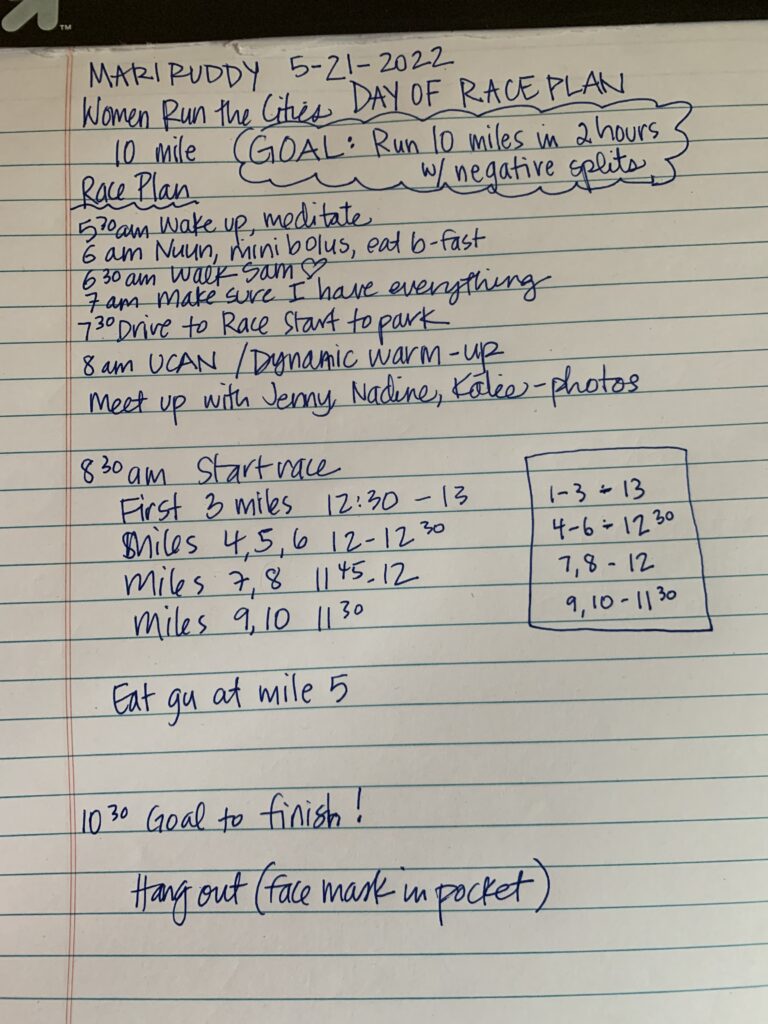 TM
MARI RUDDY 5-21-2022
DAY OF RACE PLAN
Women Run the Cities
10 mile
GOAL: Run 10 miles in 2 hours
w/ negative splits
Race Plan
5 30 am Wake up, meditate
6 am Nuun, mini bolus, eat b-fast
6 30 am Walk Sam ♡
7 am Make sure I have everything
7 30 Drive to Race Start to park
8 am UCAN / Dynamic warm-up
Meet up with Jenny, Nadine, Kalee - photos
8 30 am Start race
First 3 miles 12:30 - 13
Miles 4, 5, 6 12 - 12 30
Miles 7, 8 11 45 - 12
Miles 9, 10 11 30
1-3 - 13
4-6 - 12 30
7, 8 - 12
9, 10 - 11 30
Eat gu at mile 5
10 30 Goal to finish!
Hang out (face mask in pocket)